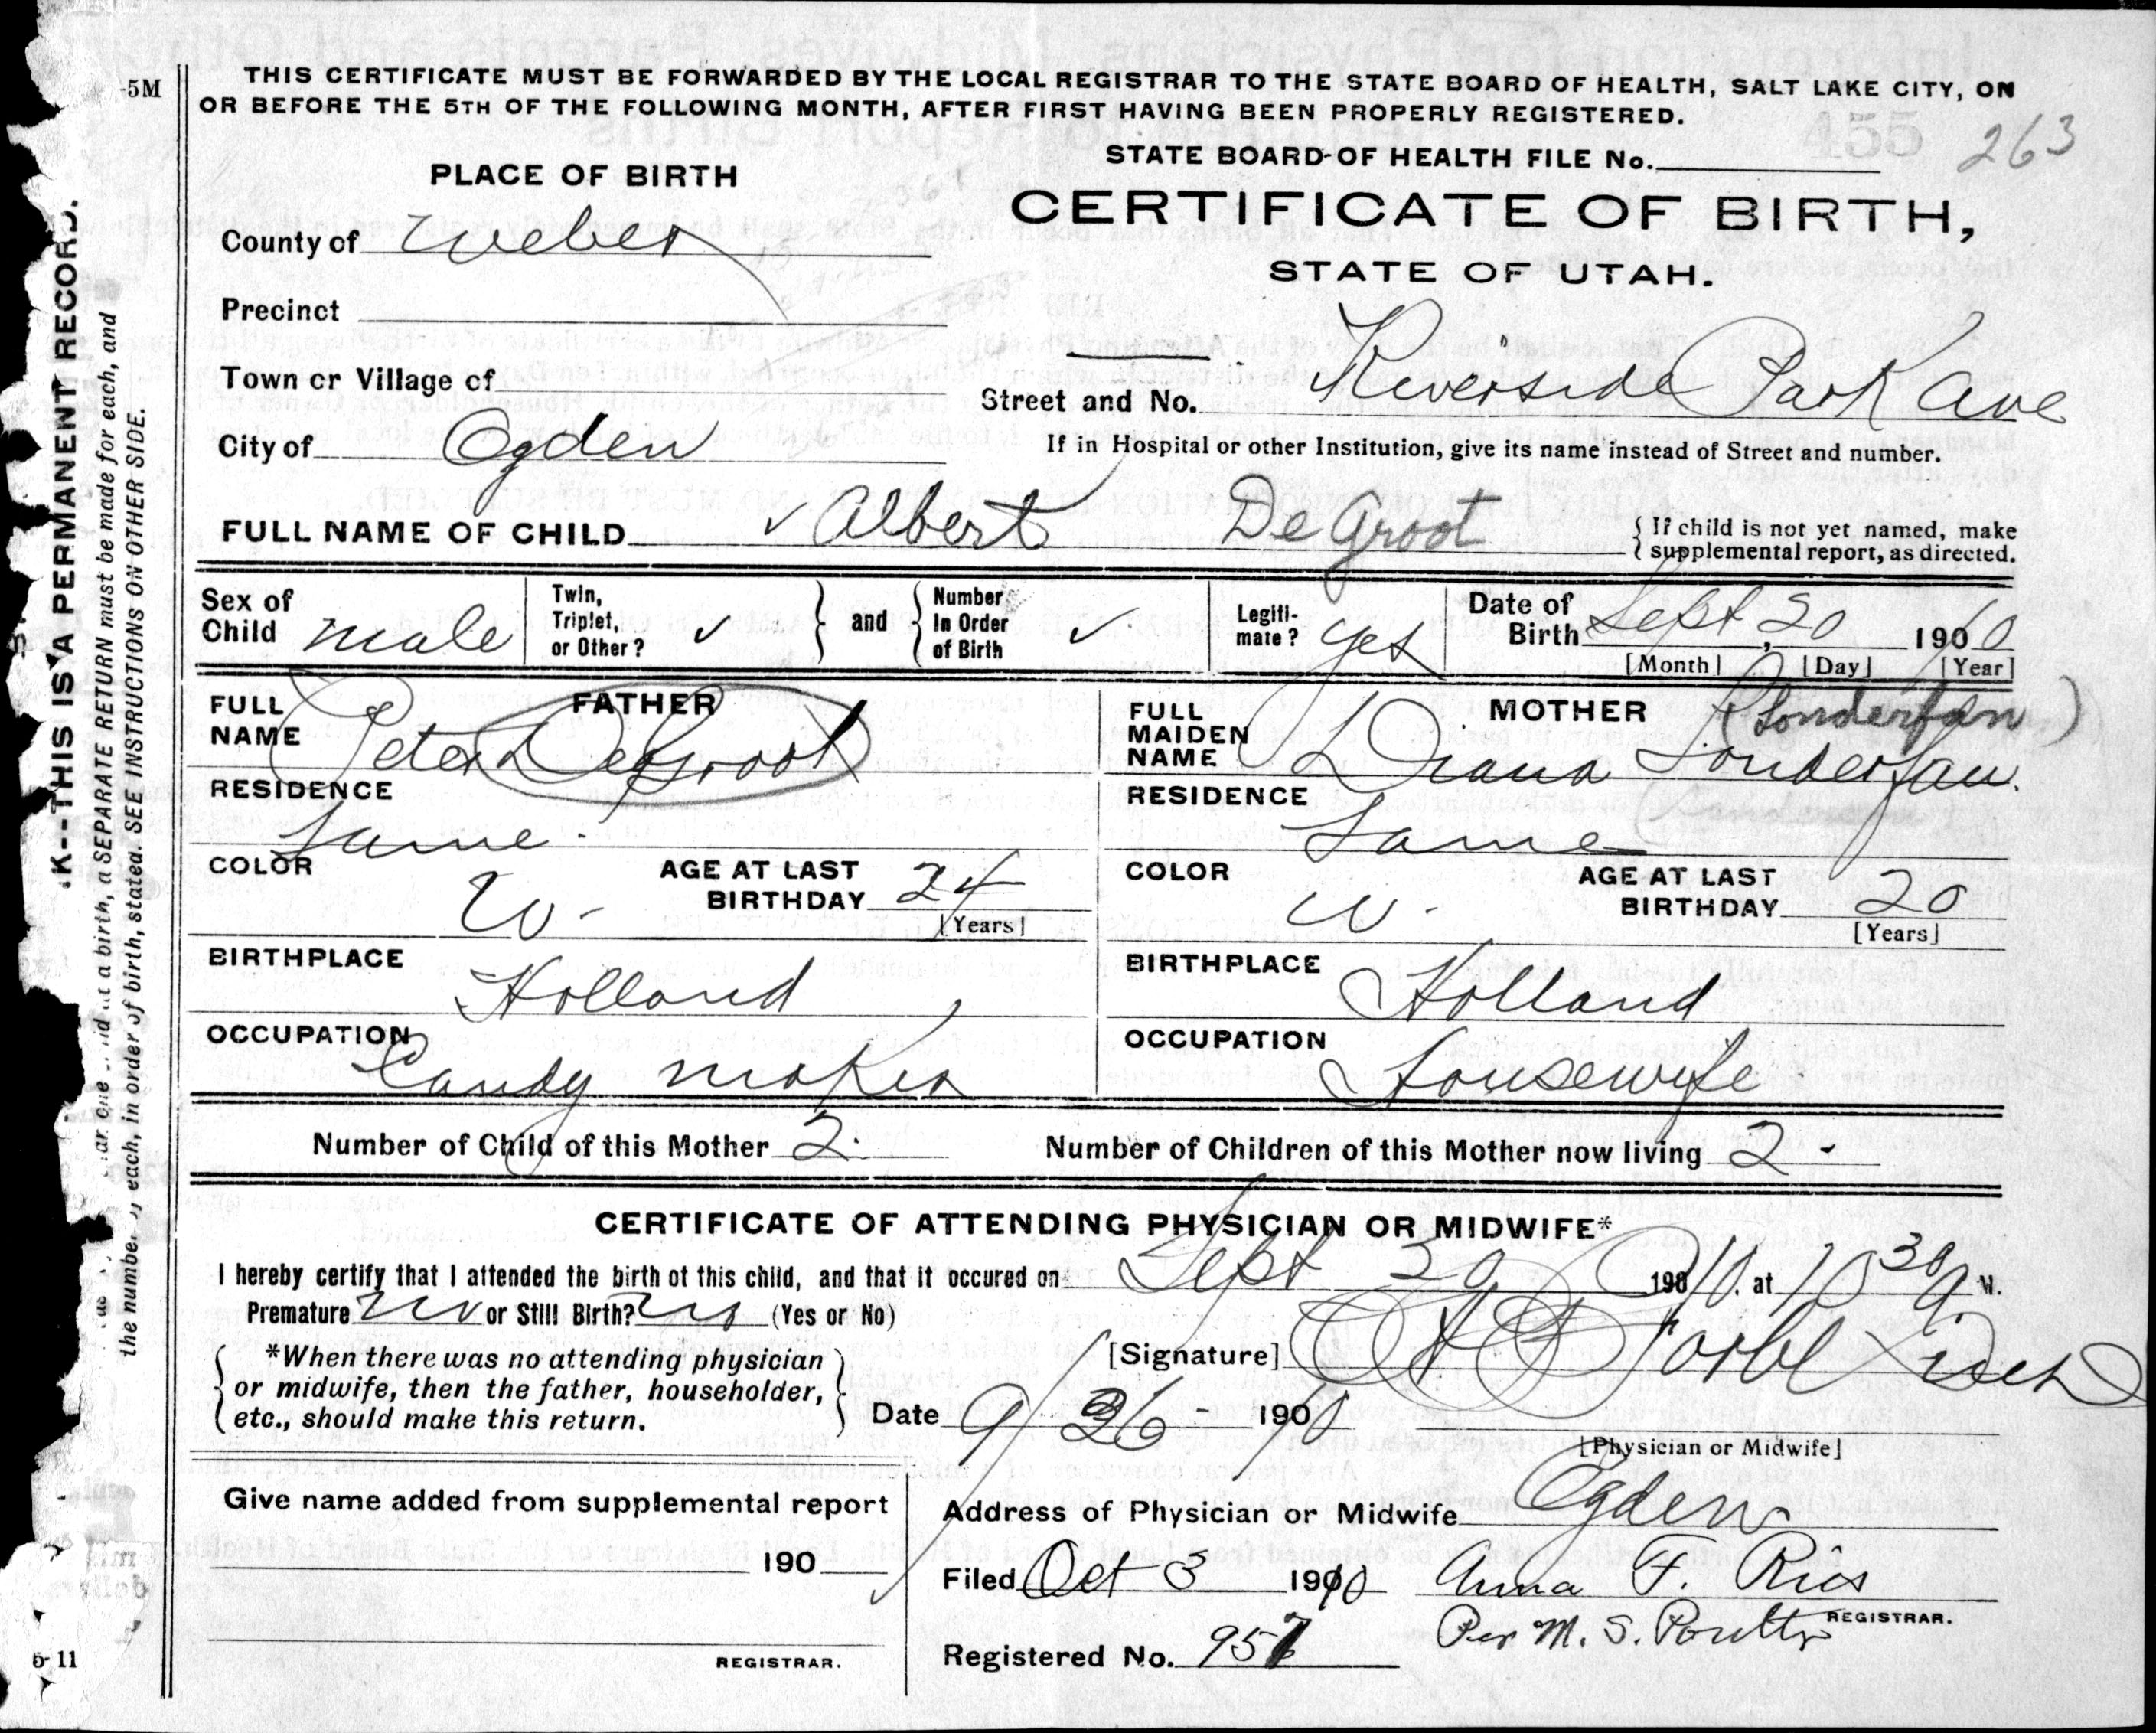 THIS CERTIFICATE MUST BE FORWARDED BY THE LOCAL REGISTRAR TO THE STATE BOARD OF HEALTH, SALT LAKE CITY, ON
OR BEFORE THE 5TH OF THE FOLLOWING MONTH, AFTER FIRST HAVING BEEN PROPERLY REGISTERED.
-5M
STATE BOARD OF HEALTH FILE No. 263
PLACE OF BIRTH
CERTIFICATE OF BIRTH,
STATE OF UTAH.
County of Weber
Precinct
Town or Village of
Street and No. Riverside Park Ave
City of Ogden
If in Hospital or other Institution, give its name instead of Street and number.
FULL NAME OF CHILD Albert De Groot
{ If child is not yet named, make
{ supplemental report, as directed.
Sex of Child male
Twin, Triplet, or Other? ✓ } and { Number In Order of Birth ✓
Legiti-mate? yes
Date of Birth Sept 20, 1910
[Month] [Day] [Year]
FATHER
FULL NAME Peter DeGroot
RESIDENCE Same
COLOR W-
AGE AT LAST BIRTHDAY 24
[Years]
BIRTHPLACE Holland
OCCUPATION Candy maker
MOTHER (Sonderfan)
FULL MAIDEN NAME Diana
RESIDENCE Same
COLOR W-
AGE AT LAST BIRTHDAY 20
[Years]
BIRTHPLACE Holland
OCCUPATION Housewife
Number of Child of this Mother 2-
Number of Children of this Mother now living 2-
CERTIFICATE OF ATTENDING PHYSICIAN OR MIDWIFE*
I hereby certify that I attended the birth of this child, and that it occured on Sept 20 1910. at 10 30 a. M.
Premature no or Still Birth? (Yes or No)
*When there was no attending physician
or midwife, then the father, householder,
etc., should make this return.
[Signature]
Date 9/26- 1910
[Physician or Midwife]
Give name added from supplemental report
190
REGISTRAR.
Address of Physician or Midwife Ogden
Filed Oct 3 1910 Anna F. Rios
REGISTRAR.
Per M. S. Poulter
Registered No. 957
K--THIS IS A PERMANENT RECORD.
at a birth, a SEPARATE RETURN must be made for each, and
the number of each, in order of birth, stated. SEE INSTRUCTIONS ON OTHER SIDE.
6-11